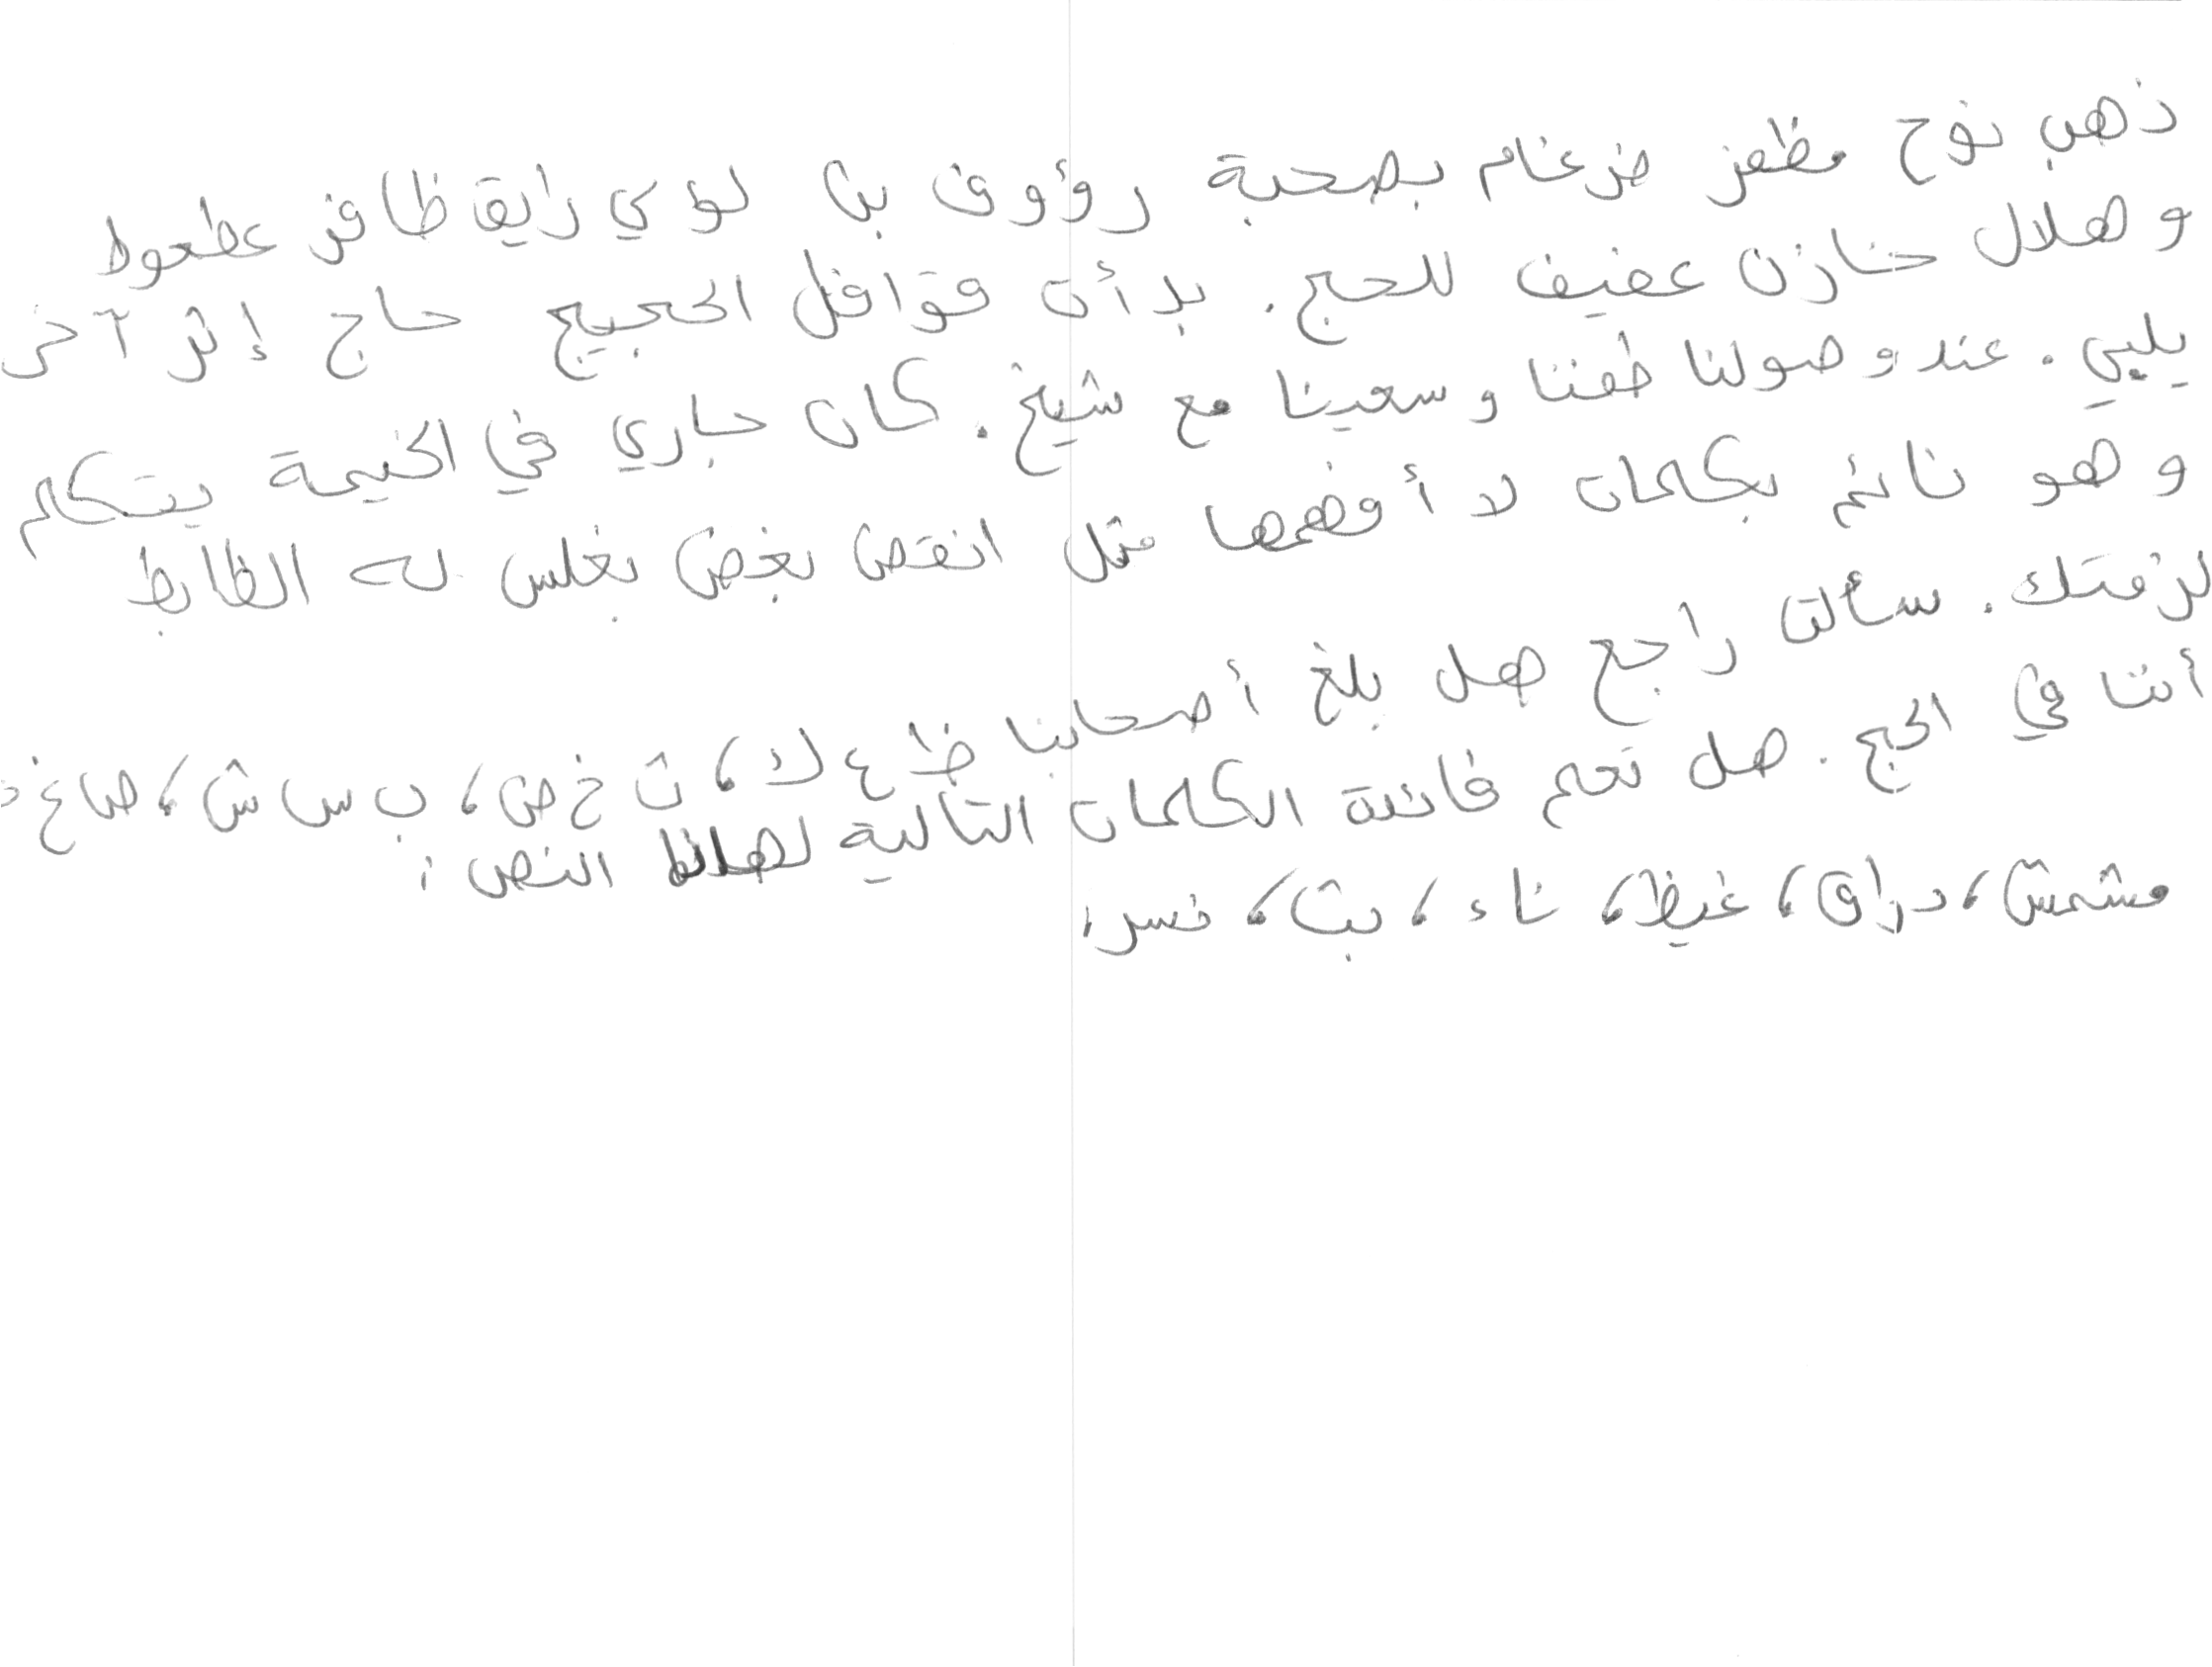 ذهب نوح مظفر ضرغام بصحبة رؤوف بن لؤي رايق ظافر عطعوط
و هلال خازن عفيف للحج. بدأت قوافل الحجيج حاج إثر آخر
يلبي. عند وصولنا طفنا وسعينا مع شيخ. كان جاري في الخيمة يتكلم
و هو نائم بكلمات لا أفهمها مثل انقض بغض بغلس له الظابط
لزفتك. سألت راجح هل بلغ أصحابنا ظ ع ك، ث خ ض، ب س ش، ص غ ذ
أنت في الحج. هل تعلم فائدة الكلمات التالية لهذا النص:
مشمش، دراق، غيظ، ناء، بث، خسر،